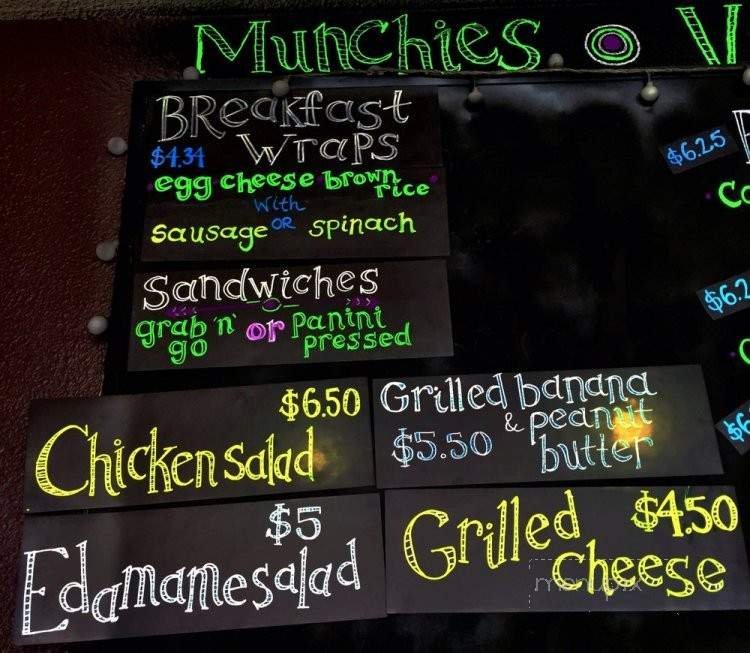 Munchies
Breakfast
Wraps
$4.34
egg cheese brown
rice
with
sausage OR spinach
Sandwiches
grab 'n' or panini
go pressed
$6.50
Chicken salad
Grilled banana
& peanut
$5.50 butter
$5
Edamame salad
Grilled $4.50
cheese
$6.25
menupix